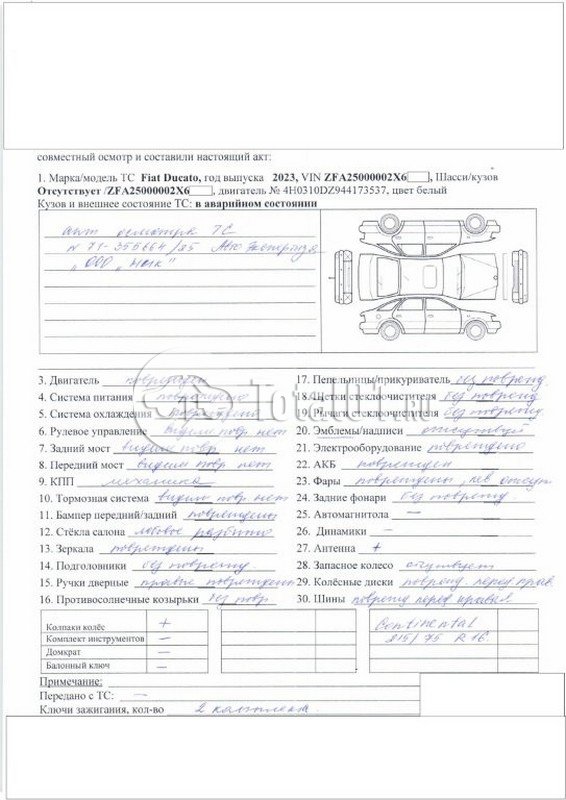 совместный осмотр и составили настоящий акт:
1. Марка/модель ТС Fiat Ducato, год выпуска 2023, VIN ZFA25000002X6 , Шасси/кузов
Отсутствует /ZFA25000002X6 , двигатель № 4H0310DZ944173537, цвет белый
Кузов и внешнее состояние ТС: в аварийном состоянии
акт осмотра ТС
N 71-356664/85
"ООО
3. Двигатель поврежден
4. Система питания повреждено
5. Система охлаждения повреждено
6. Рулевое управление видим повр нет
7. Задний мост видим повр нет
8. Передний мост видим повр нет
9. КПП механика
10. Тормозная система видим повр нет
11. Бампер передний/задний повреждены
12. Стёкла салона лобовое разбито
13. Зеркала повреждены
14. Подголовники без поврежд.
15. Ручки дверные правые повреждены
16. Противосолнечные козырьки без повр
17. Пепельницы/прикуриватель без поврежд.
18. Щетки стеклоочистителя без поврежд
19. Рычаги стеклоочистителя без поврежд
20. Эмблемы/надписи отсутствуй
21. Электрооборудование повреждено
22. АКБ поврежден
23. Фары повреждены, лев отсут
24. Задние фонари без поврежд.
25. Автомагнитола —
26. Динамики —
27. Антенна +
28. Запасное колесо отсутствует
29. Колёсные диски поврежд. перед прав.
30. Шины поврежд перед правая
Колпаки колёс +
Комплект инструментов —
Домкрат —
Балонный ключ —
Continental
215/75 R16
Примечание:
Передано с ТС: —
Ключи зажигания, кол-во 2 комплекта
Total01.ru